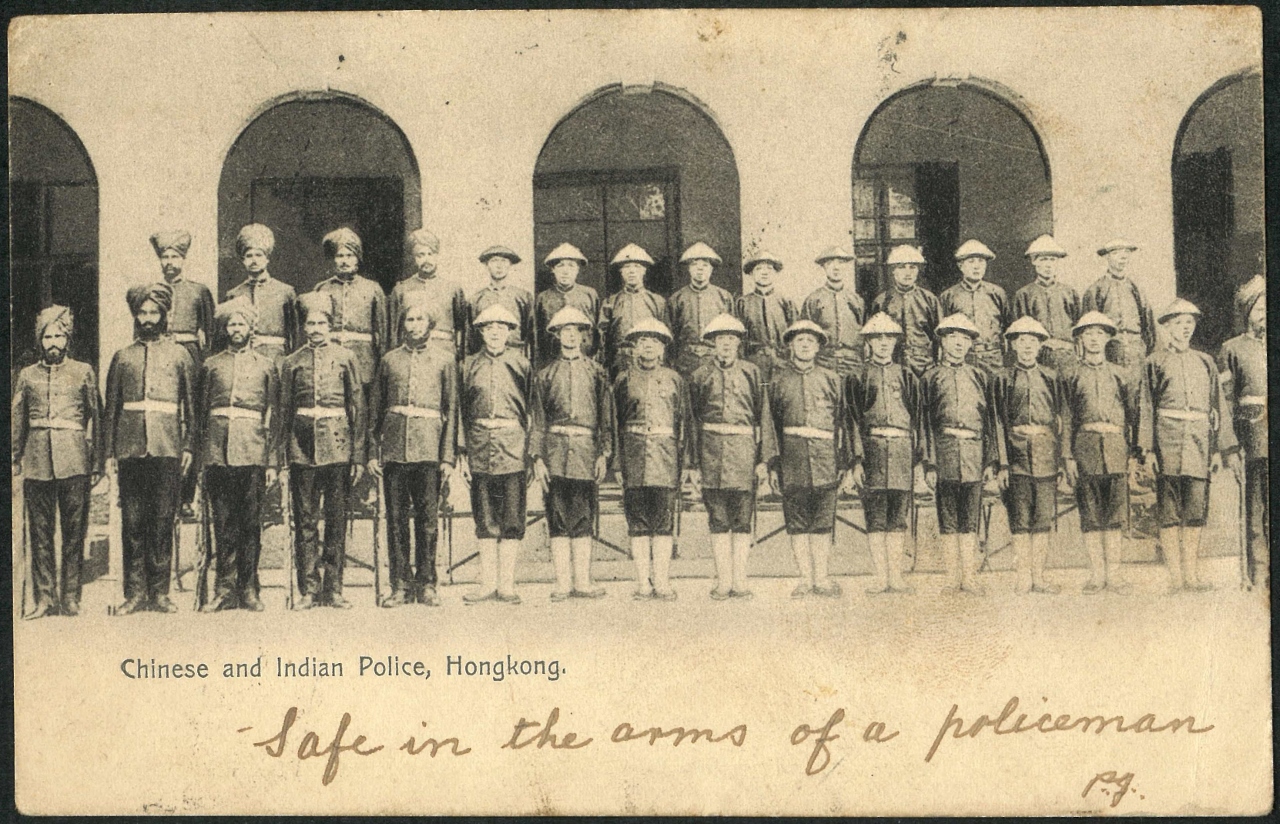 Chinese and Indian Police, Hongkong.
Safe in the arms of a policeman
P.G.